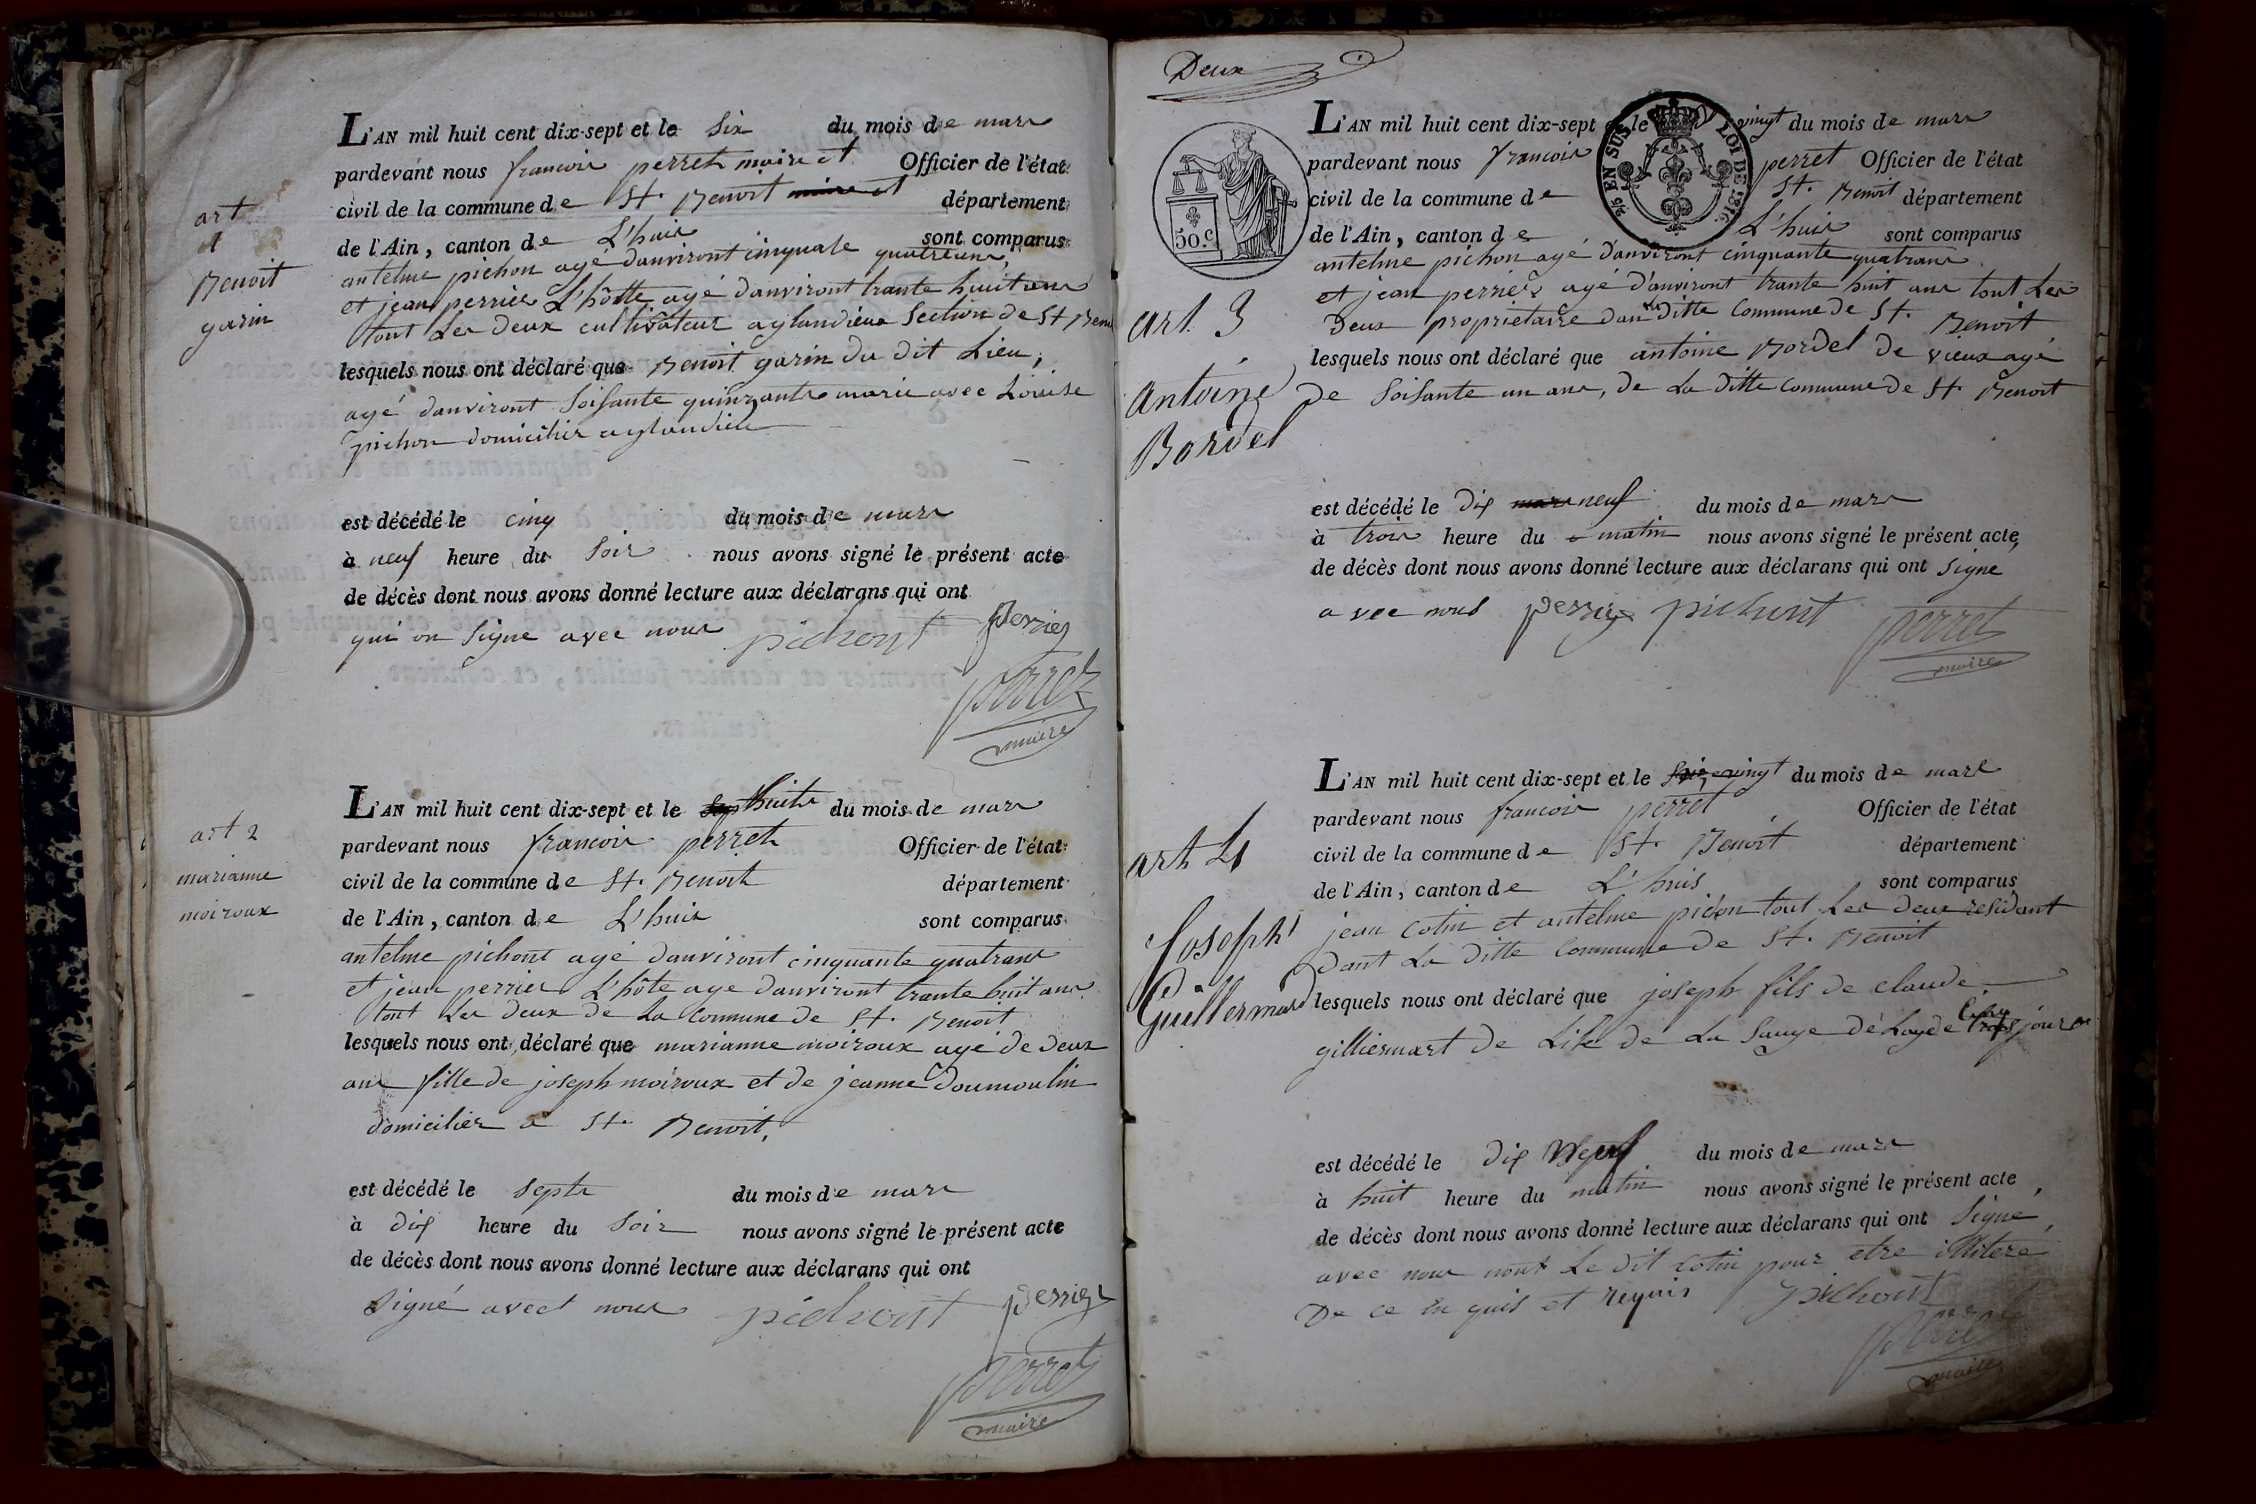 art
1
Benoit
garin
L'AN mil huit cent dix-sept et le six du mois de mars
pardevant nous francois perret maire et Officier de l'état
civil de la commune de St. Benoit maire et département
de l'Ain, canton de L'huis sont comparus
antelme pichon agé danviront cinquate quatreans,
et jean perrier L'hôtte agé danviront trante huit ans
tout Les Deux cultivateur aglandieu Section de St Benoi
lesquels nous ont déclaré que Benoit garin du dit Lieu,
agé danviront soisante quinzante marie avec Louise
pichon domicilier aglandieu
est décédé le cinq du mois de mars
à neuf heure du soir nous avons signé le présent acte
de décès dont nous avons donné lecture aux déclarans qui ont
qui on signe avec nous pichont perrier
perret
maire
art 2
marianne
moiroux
L'AN mil huit cent dix-sept et le sep huite du mois de mars
pardevant nous francois perret Officier de l'état
civil de la commune de St. Benoit département
de l'Ain, canton de L'huis sont comparus
antelme pichont agé danviront cinquante quatrans
et jean perrier L'hôte age danviront trante huit ans
tout Les Deux de La Commune de St. Benoit
lesquels nous ont déclaré que marianne moiroux agé de deux
ans fille de joseph moiroux et de jeanne Doumoulin
domicilier a St. Benoit,
est décédé le septe du mois de mars
à dix heure du soir nous avons signé le présent acte
de décès dont nous avons donné lecture aux déclarans qui ont
signé avect nous pichont perrier
perret
maire
Deux
50.c
2/5 EN SUS LOI DE 1816
art. 3
Antoine
Bordel
L'AN mil huit cent dix-sept et le vingt du mois de mars
pardevant nous francois perret Officier de l'état
civil de la commune de St. Benoit département
de l'Ain, canton de L'huis sont comparus
antelme pichon agé d'anviront cinquante quatrans
et jean perrier agé d'anviront trante huit ans tout Les
Deux proprietaire dan la ditte Commune de St. Benoit
lesquels nous ont déclaré que antoine Bordel de vieux agé
de soisante un ans, de La ditte Commune de St. Benoit
est décédé le dix mars neuf du mois de mars
à trois heure du matin nous avons signé le présent acte
de décès dont nous avons donné lecture aux déclarans qui ont signe
avec nous perrier pichont perret
maire
art 4
Joseph
Guillermard
L'AN mil huit cent dix-sept et le vingt du mois de mars
pardevant nous francois perret Officier de l'état
civil de la commune de St. Benoit département
de l'Ain, canton de L'huis sont comparus
jean Cotin et antelme picon tout Les deux residant
dant La ditte Commune de St. Benoit
lesquels nous ont déclaré que joseph fils de claude
gilliermart de Lile de La Sauge dé L'agé de cinq jours
est décédé le dix neuf du mois de mars
à huit heure du matin nous avons signé le présent acte
de décès dont nous avons donné lecture aux déclarans qui ont signe
avec nous nont Le Dit Cotin pour etre illitere
De ce en quis et requis pichont
perret
maire